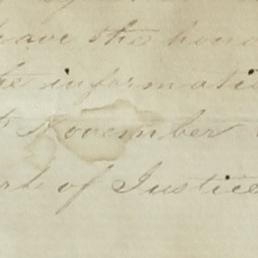 have the hono
he informati
November
of Justice